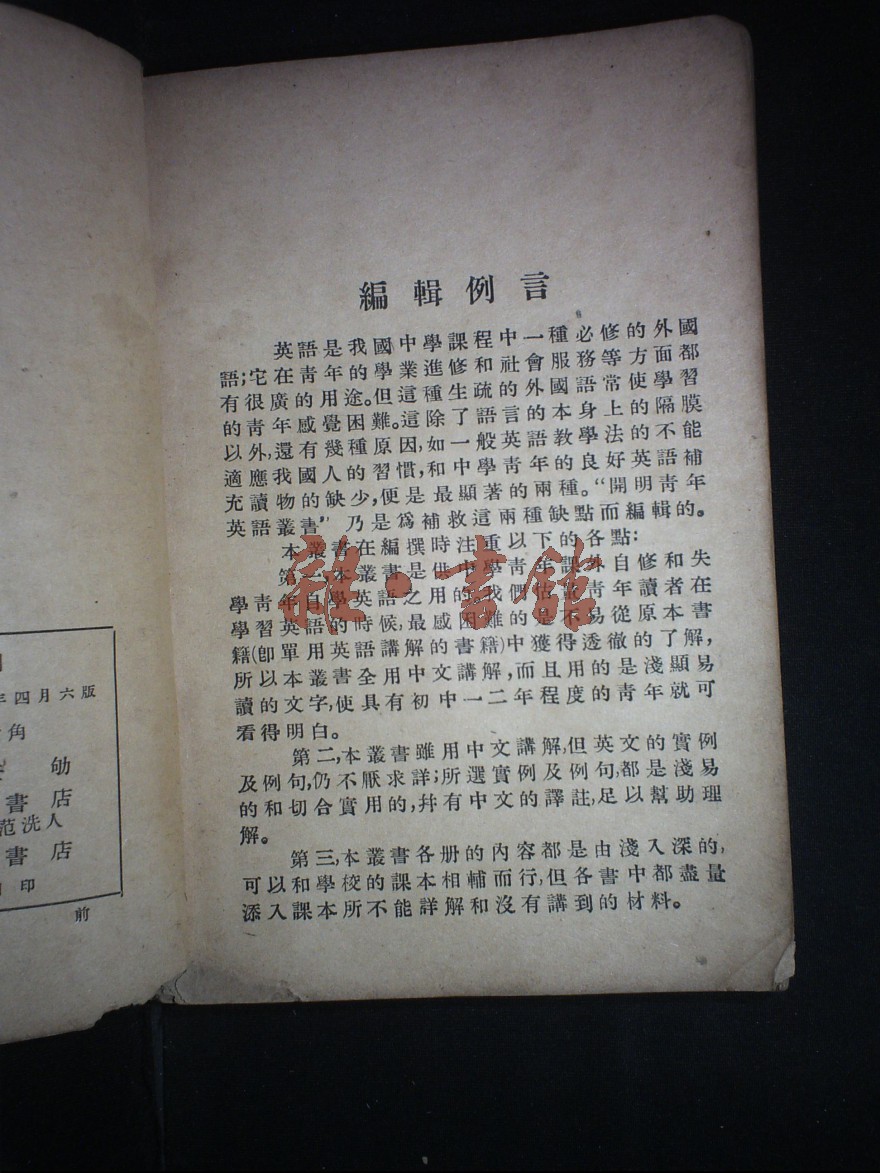 年四月六版
角
劬
書店
范洗人
書店
印
前
編輯例言
英語是我國中學課程中一種必修的外國
語；宅在靑年的學業進修和社會服務等方面都
有很廣的用途。但這種生疏的外國語常使學習
的靑年感覺困難。這除了語言的本身上的隔膜
以外，還有幾種原因，如一般英語敎學法的不能
適應我國人的習慣，和中學靑年的良好英語補
充讀物的缺少，便是最顯著的兩種。“開明靑年
英語叢書”乃是爲補救這兩種缺點而編輯的。
本叢書在編撰時注重以下的各點：
第一，本叢書是供中學靑年課外自修和失
學靑年自學英語之用的。我們估量靑年讀者在
學習英語的時候，最感困難的是不易從原本書
籍（卽單用英語講解的書籍）中獲得透徹的了解，
所以本叢書全用中文講解，而且用的是淺顯易
讀的文字，使具有初中一二年程度的靑年就可
看得明白。
第二，本叢書雖用中文講解，但英文的實例
及例句，仍不厭求詳；所選實例及例句，都是淺易
的和切合實用的，幷有中文的譯註，足以幫助理
解。
第三，本叢書各册的內容都是由淺入深的，
可以和學校的課本相輔而行，但各書中都盡量
添入課本所不能詳解和沒有講到的材料。
雜·書館